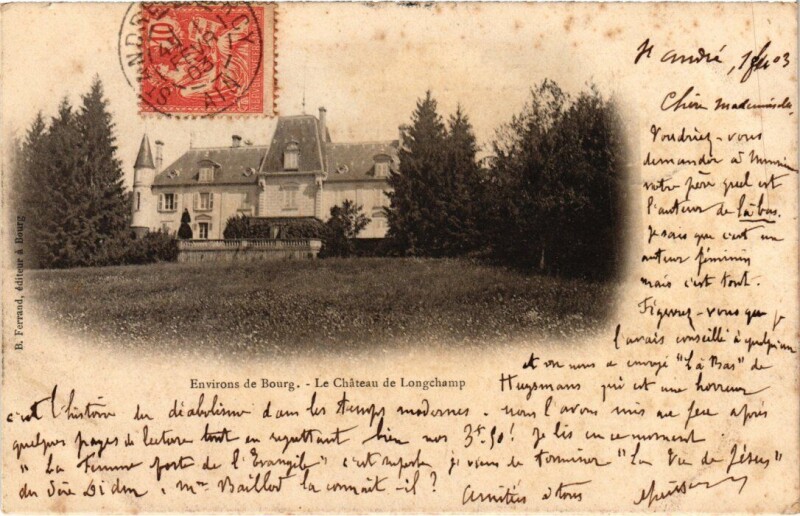 St André, 1 fev 03
Chère Mademoiselle
Voudriez-vous
demander à Monsieur
votre père quel est
l'auteur de là bas.
Je sais que c'est un
auteur féminin
mais c'est tout.
Figurez-vous que je
l'avais conseillé à quelqu'un
et on nous a envoyé "Là Bas" de
Huysmans qui est une horreur
c'est l'histoire du diabolisme dans les temps modernes. nous l'avons mis au feu après
quelques pages de lecture tout en regrettant bien nos 3f.50! Je lis en ce moment
"La Femme forte de l'Evangile" c'est superbe je viens de terminer "La Vie de Jésus"
du Père Didon, Mme Baillod la connait-il?
Amitiés à tous
Environs de Bourg. - Le Château de Longchamp
B. Ferrand, éditeur à Bourg
10
AIN